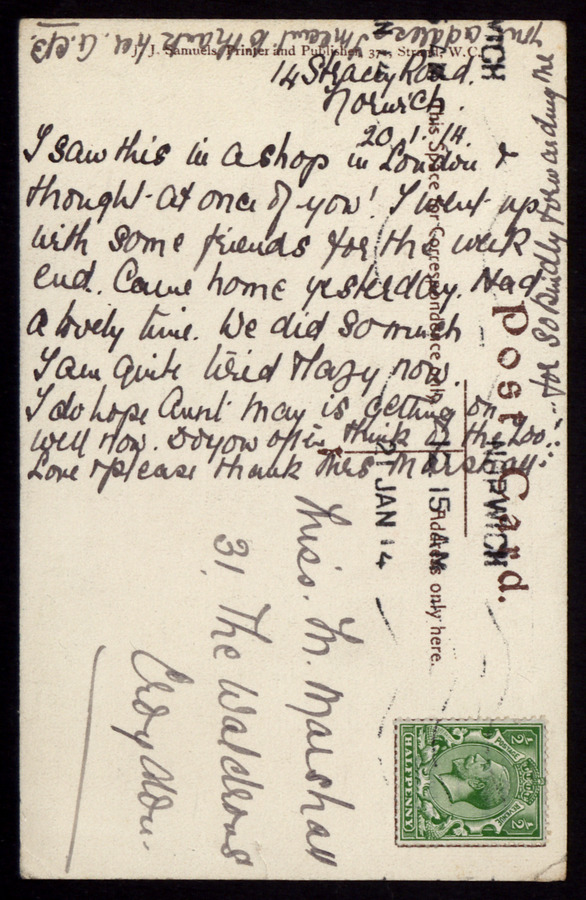 J. J. Samuels, Printer and Publisher, 371, Strand, W.C.
14 Stracey Road.
Norwich.
20.1.14.
I saw this in a shop in London &
thought at once of you! I went up
with some friends for the week
end. Came home yesterday. Had
a lovely time. We did so much
I am quite tired & lazy now.
I do hope Aunt May is getting on
well now. Do you often think of the Zoo!
Love & please thank Mrs Marshall
for so kindly forwarding me
your address I meant to thank her.
This Space for Correspondence only.
Post Card.
Address only here.
NORWICH
15 AM
21 JAN 14
Miss. M. Marshall
31, The Waldrons
Croydon.
POSTAGE
REVENUE
½
½
HALFPENNY